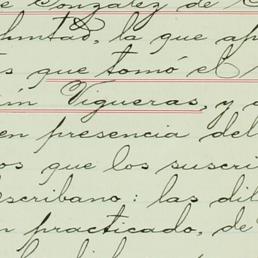 e Gonzalez de C
luntad, la que ap
s que tomó el
in Vigueras, y a
en presencia del
os que los suscri
escribano: las dil
n practicado, de